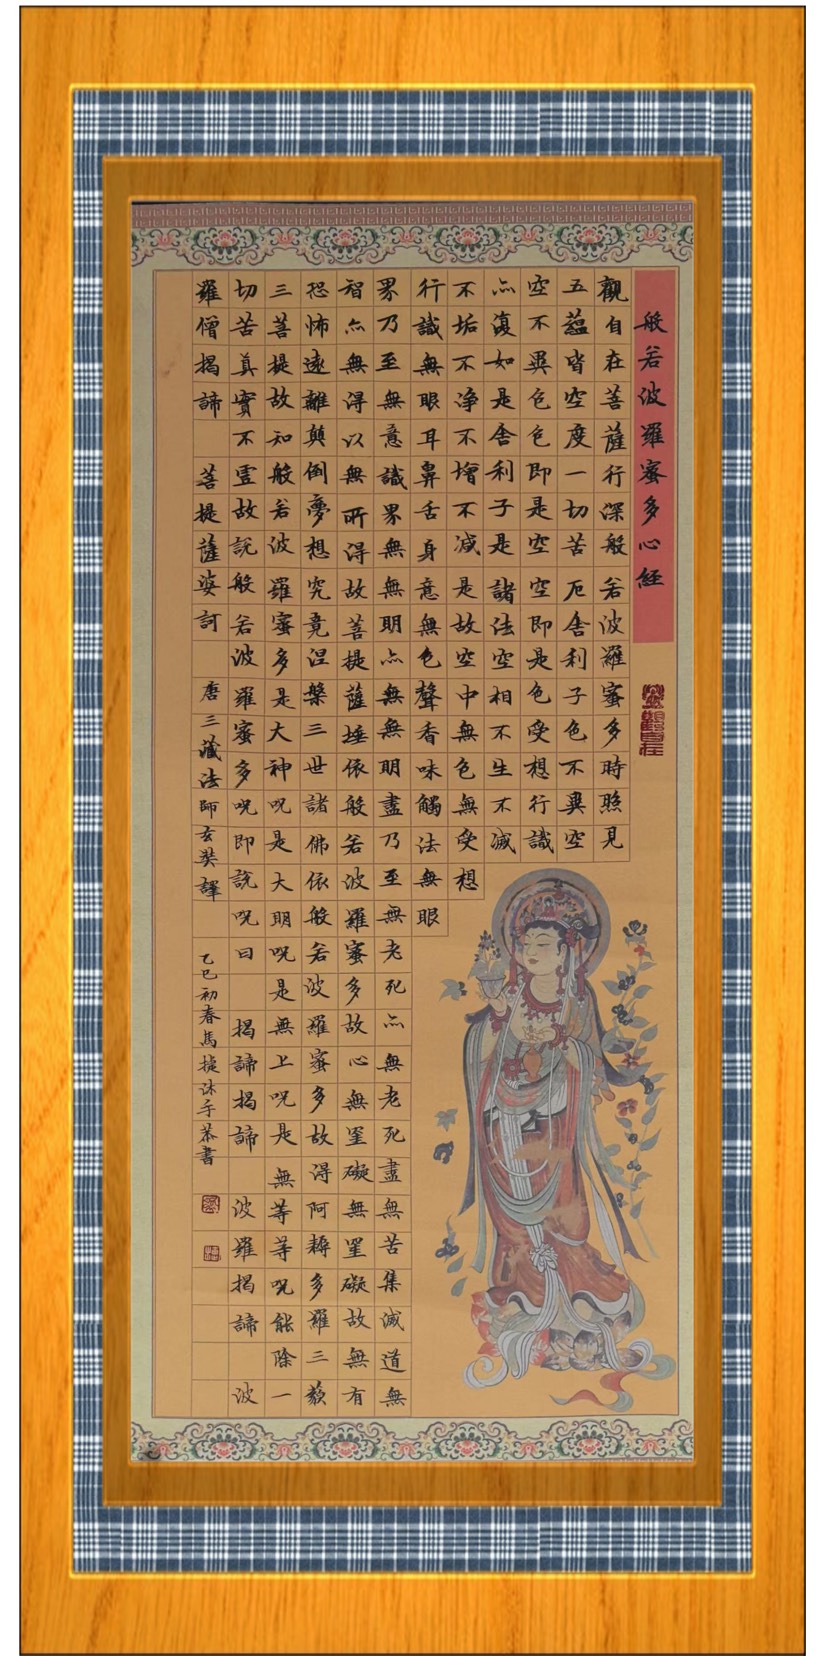 般若波羅蜜多心経
觀自在菩薩行深般若波羅蜜多時照見
五蘊皆空度一切苦厄舍利子色不異空
空不異色色即是空空即是色受想行識
亦復如是舍利子是諸法空相不生不滅
不垢不净不增不减是故空中無色無受想
行識無眼耳鼻舌身意無色聲香味觸法無眼
界乃至無意識界無無明亦無無明盡乃至無老死亦無老死盡無苦集滅道無
智亦無得以無所得故菩提薩埵依般若波羅蜜多故心無罣礙無罣礙故無有
恐怖遠離顛倒夢想究竟涅槃三世諸佛依般若波羅蜜多故得阿耨多羅三藐
三菩提故知般若波羅蜜多是大神咒是大明咒是無上咒是無等等咒能除一
切苦真實不虛故說般若波羅蜜多咒即說咒曰 揭諦揭諦 波羅揭諦 波
羅僧揭諦 菩提薩婆訶 唐三藏法師玄奘譯 乙巳初春馬捷沐手恭書